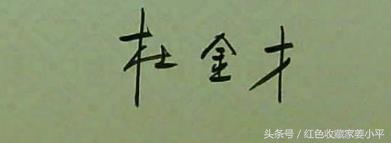 杜金才
头条号／红色收藏家姜小平